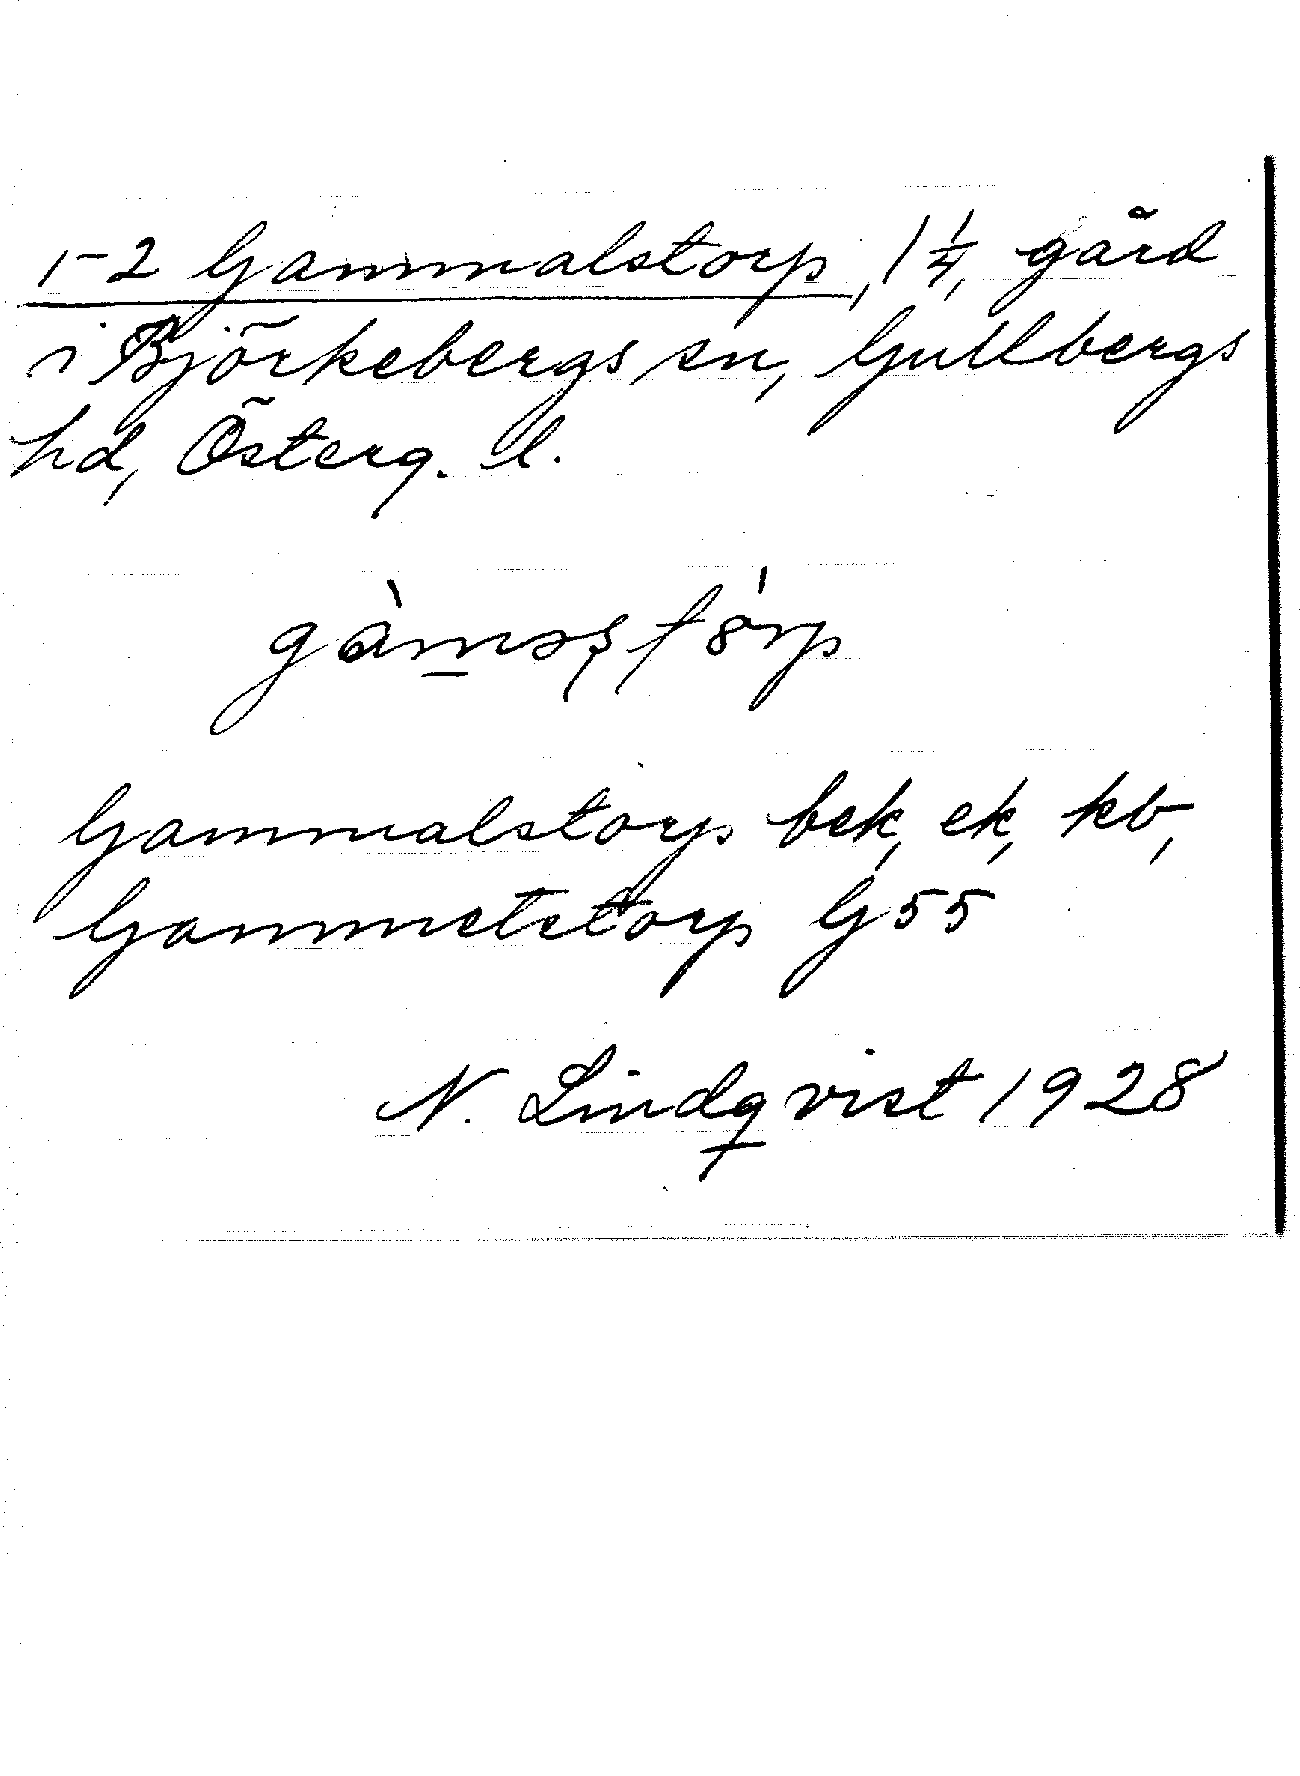 1-2 Gammalstorp, 1 1/4, gård
i Björkebergs sn, Gullbergs
hd, Österg. l.
Gammalstorp bek, ek, kb,
Gammelstorp G 55
N. Lindqvist 1928